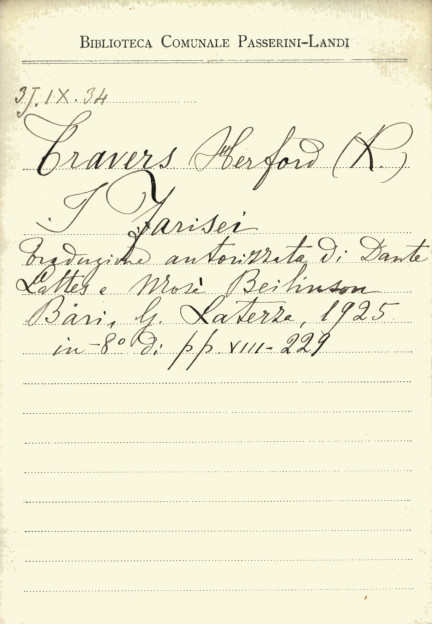 BIBLIOTECA COMUNALE PASSERINI-LANDI
IX.34
Travers Herford (R.)
I Farisei
Traduzione autorizzata di Dante
Lattes e Mosè Beilinson
Bari, G. Laterza, 1925
in-8° di pp. VIII-229